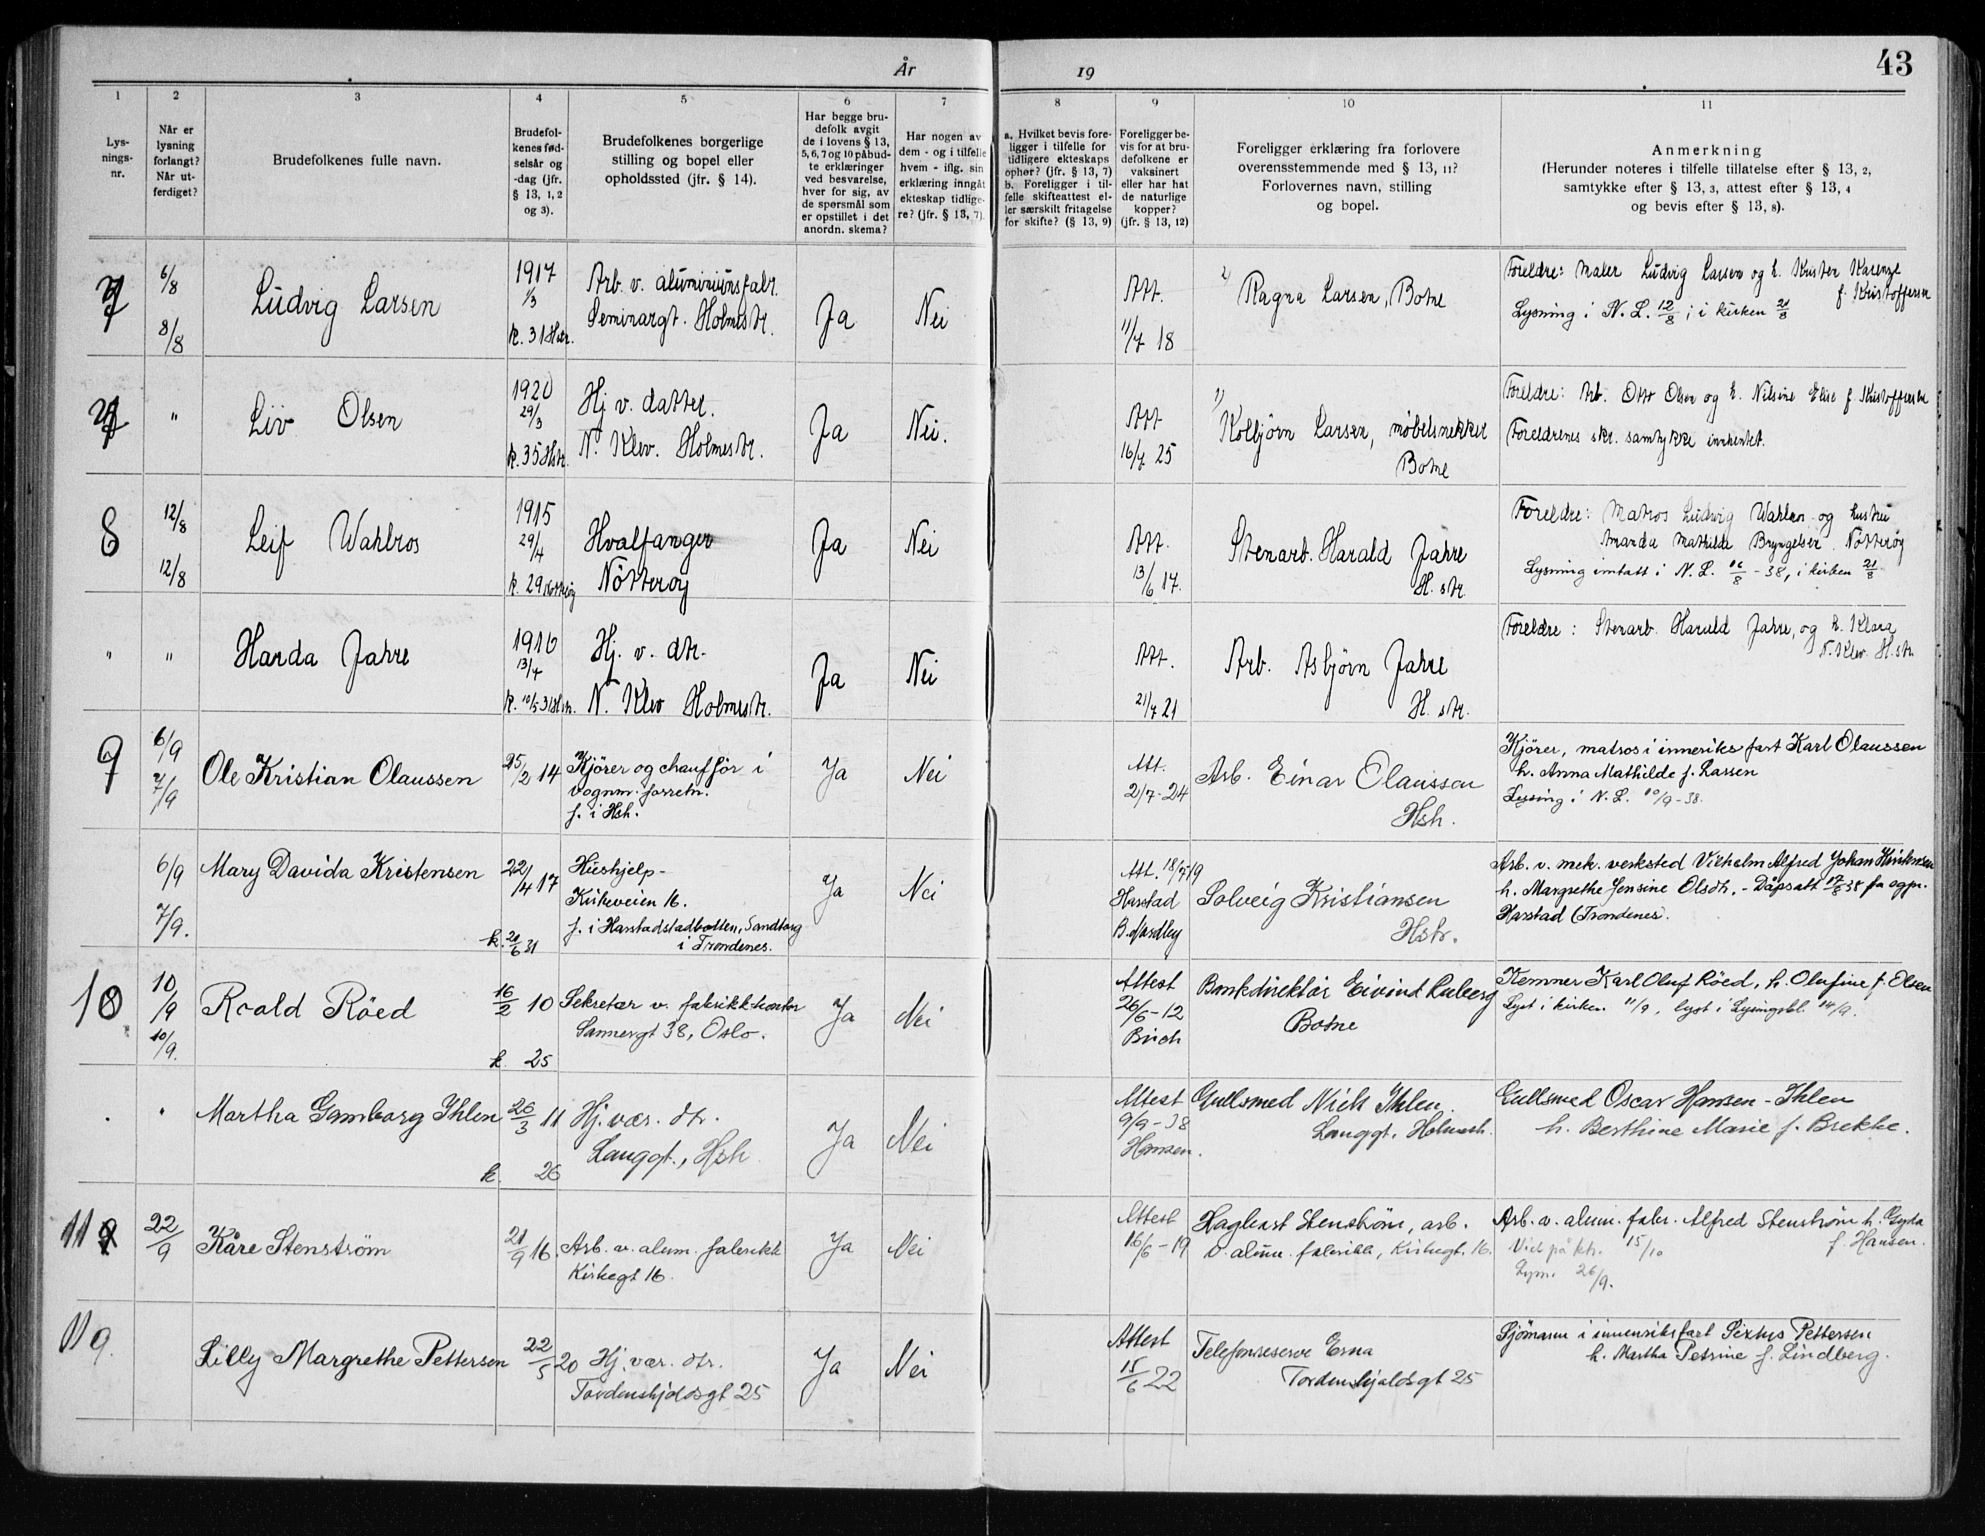 År
19
43
1
2
3
4
5
6
7
8
9
10
11
Lys-
nings-
nr.
Når er
lysning
forlangt?
Når ut-
ferdiget?
Brudefolkenes fulle navn.
Brudefol-
kenes fød-
selsår og
-dag (jfr.
§ 13, 1, 2
og 3).
Brudefolkenes borgerlige
stilling og bopel eller
opholdssted (jfr. § 14).
Har begge bru-
defolk avgit
de i lovens § 13,
5, 6, 7 og 10 påbud-
te erklæringer
ved besvarelse,
hver for sig, av
de spørsmål som
er opstillet i det
anordn. skema?
Har nogen av
dem - og i tilfelle
hvem - iflg. sin
erklæring inngåt
ekteskap tidlige-
re? (jfr. § 13, 7).
a. Hvilket bevis fore-
ligger i tilfelle for
tidligere ekteskaps
ophør? (jfr. § 13, 7)
b. Foreligger i til-
felle skifteattest el-
ler særskilt fritagelse
for skifte? (§ 13, 9)
Foreligger be-
vis for at bru-
defolkene er
vaksinert
eller har hat
de naturlige
kopper?
(jfr. § 13, 12)
Foreligger erklæring fra forlovere
overensstemmende med § 13, 11?
Forlovernes navn, stilling
og bopel.
Anmerkning
(Herunder noteres i tilfelle tillatelse efter § 13, 2,
samtykke efter § 13, 3, attest efter § 13, 4
og bevis efter § 13, 8).
7
6/8
8/8
Ludvig Larsen
1917
1/3
k. 31 Hstr.
Arb. v. aluminiumsfabr.
Seminargt. Holmestr.
Ja
Nei
Att.
11/7 18
2) Ragna Larsen, Botne
Foreldre: Maler Ludvig Larsen og h. Kristen
f. Kristoffersen
Lysning i N. L. 12/8; i kirken 21/8
7
"
Liv Olsen
1920
29/3
k. 35 Hstr.
Hj v. datter.
N. Klev. Holmestr.
Ja
Nei.
Att
16/7 25
1) Kolbjørn Larsen, møbelsnekker
Botne
Foreldre: Arb. Otto Olsen og h. Nilsine Elise f. Kristoffersen
Foreldrenes skr. samtykke innhentet.
8
12/8
12/8
Leif Wahlros
1915
29/4
k. 29 Nøtterøy
Hvalfanger
Nøtterøy
Ja
Nei
Att.
13/6 17.
Stenarb. Harald Jahre
H. str.
Foreldre: Matros Ludvig Wahlros og hustru
Amanda Mathilde Bryngelsen. Nøtterøy
Lysning inntatt i N. L. 16/8 - 38, i kirken 21/8
"
"
Harda Jahre
1916
13/4
k. 10/5 31 Hstr.
Hj. v. dtr.
N. Klev Holmestr.
Ja
Nei
Att.
21/7 21
Arb. Asbjørn Jahre
H. str.
Foreldre: Stenarb. Harald Jahre, og h. Klara
N. Klev H. str.
9
6/9
7/9
Ole Kristian Olaussen
25/2 14
Kjører og chauffør i
vognm. forretn.
f. i Hsh.
Ja
Nei
Att.
2/7-24
Arb. Einar Olaussen
Hsh.
Kjører, matros i innenriks fart Karl Olaussen
h. Anna Mathilde f. Larsen
Lysning i N. L. 10/9-38.
6/9
7/9.
Mary Davida Kristensen
22/4 17
k. 21/6 31
Hushjelp-
Kirkeveien 16.
f. i Harstadstadbotten, Sandtorg
i Trondenes.
Ja
Nei
Att. 18/7 19
Harstad
B. Nordby
Solveig Kristiansen
Hstr.
Arb. v. mek. verksted Vilhelm Alfred Johan Kristensen
h. Margrethe Jensine Olsdtr. - Dåpsatt 17/8 38 fra sogpr.
Harstad (Trondenes).
10
10/9
10/9.
Roald Röed
16/2 10
k. 25
Sekretær v. fabrikk-kontor
Sannergt 38, Oslo.
Ja
Nei
Attest
26/6-12
Birch
Bankdirektör Eivind
Botne
Kemner Karl Oluf Röed, h. Olufine f. Olsen
Lyst i kirken 11/9, lyst i Lysingsbl. 14/9.
.
"
Martha Gamborg Ihlen
26/3 11
k. 26
Hj. vær. dtr.
Langgt., Hsh
Ja
Nei
Attest
9/9-38
Hansen.
Gullsmed Nick Ihlen
Langgt. Holmestr.
Gullsmed Oscar Hansen-Ihlen
h. Berthine Marie f. Brekke.
11
22/9
Kåre Stenström
21/9 16.
Arb. v. alum. fabrikk
Kirkegt 16.
Ja
Nei
Attest
16/6-19
Haglund Stenström, arb.
v. alum. fabrikk, Kirkegt. 16.
Arb. v. alum. fabr. Alfred Stenström h. Gyda
f. Hansen.
Viet på ktr. 15/10
Lysn. 26/9.
11 9.
Lilly Margrethe Pettersen
22/5 20
Hj. vær. dtr.
Tordenskjoldsgt 25
Ja
Nei
Attest
15/6 22
Telefonreserve Erna
Tordenskjoldsgt 25
Sjömann i innenriksfart Sixtus Pettersen
h. Martha Petrine f. Lindberg.